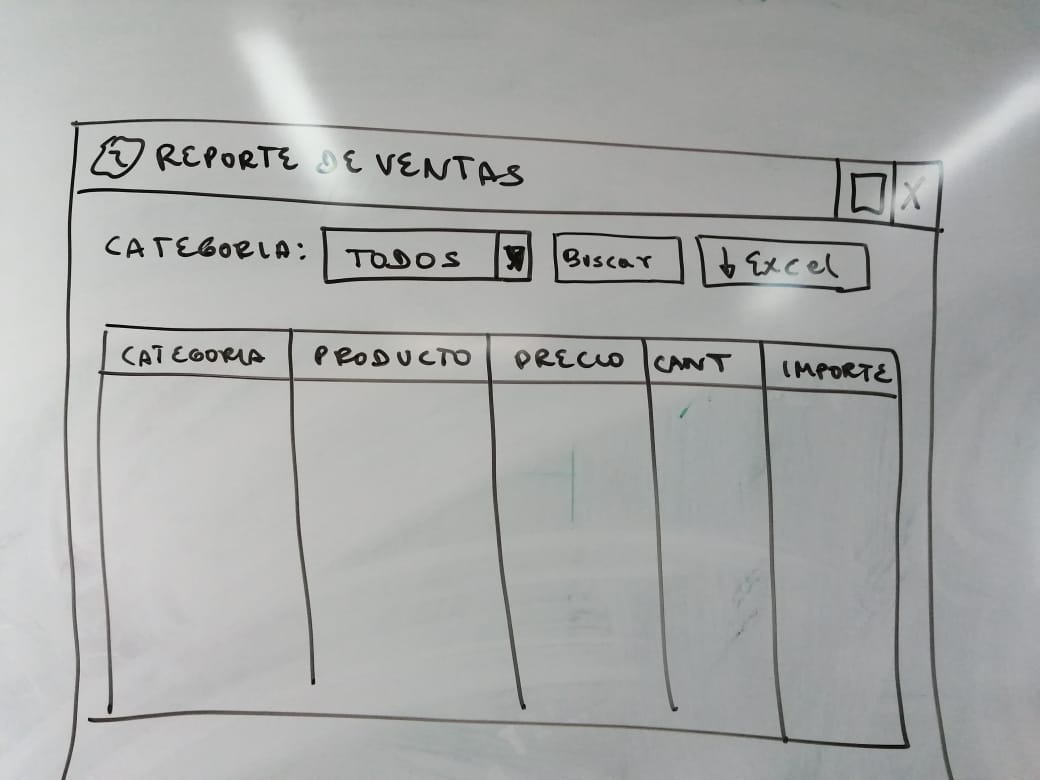 REPORTE DE VENTAS X
CATEGORIA: TODOS Buscar ↓ Excel
CATEGORIA PRODUCTO PRECIO CANT IMPORTE